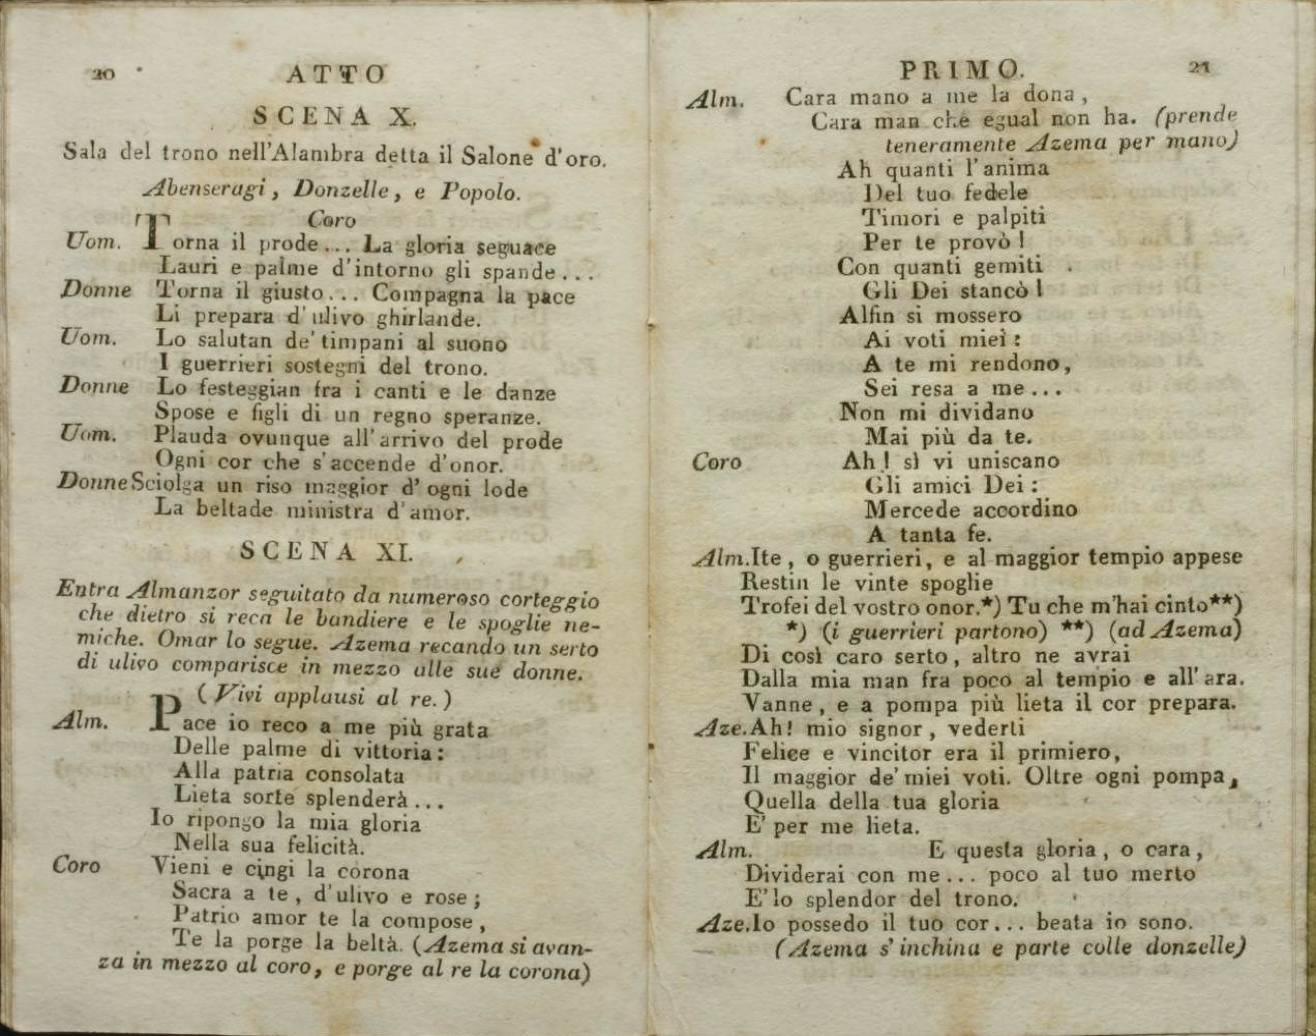 20
ATTO
SCENA X.
Sala del trono nell'Alambra detta il Salone d'oro.
Abenseragi, Donzelle, e Popolo.
Coro
Uom. Torna il prode... La gloria seguace
Lauri e palme d'intorno gli spande...
Donne Torna il giusto... Compagna la pace
Li prepara d'ulivo ghirlande.
Uom. Lo salutan de' timpani al suono
I guerrieri sostegni del trono.
Donne Lo festeggian fra i canti e le danze
Spose e figli di un regno speranze.
Uom. Plauda ovunque all'arrivo del prode
Ogni cor che s'accende d'onor.
Donne Sciolga un riso maggior d'ogni lode
La beltade ministra d'amor.
SCENA XI.
Entra Almanzor seguitato da numeroso corteggio
che dietro si reca le bandiere e le spoglie ne-
miche. Omar lo segue. Azema recando un serto
di ulivo comparisce in mezzo alle sue donne.
(Vivi applausi al re.)
Alm. Pace io reco a me più grata
Delle palme di vittoria:
Alla patria consolata
Lieta sorte splenderà...
Io ripongo la mia gloria
Nella sua felicità.
Coro Vieni e cingi la corona
Sacra a te, d'ulivo e rose;
Patrio amor te la compose,
Te la porge la beltà. (Azema si avan-
za in mezzo al coro, e porge al re la corona)
PRIMO.
21
Alm. Cara mano a me la dona,
Cara man che egual non ha. (prende
teneramente Azema per mano)
Ah quanti l'anima
Del tuo fedele
Timori e palpiti
Per te provò!
Con quanti gemiti
Gli Dei stancò!
Alfin si mossero
Ai voti miei:
A te mi rendono,
Sei resa a me...
Non mi dividano
Mai più da te.
Coro Ah! sì vi uniscano
Gli amici Dei:
Mercede accordino
A tanta fe.
Alm. Ite, o guerrieri, e al maggior tempio appese
Restin le vinte spoglie
Trofei del vostro onor.*) Tu che m'hai cinto**)
*) (i guerrieri partono) **) (ad Azema)
Di così caro serto, altro ne avrai
Dalla mia man fra poco al tempio e all'ara.
Vanne, e a pompa più lieta il cor prepara.
Aze. Ah! mio signor, vederti
Felice e vincitor era il primiero,
Il maggior de' miei voti. Oltre ogni pompa,
Quella della tua gloria
E' per me lieta.
Alm. E questa gloria, o cara,
Dividerai con me... poco al tuo merto
E' lo splendor del trono.
Aze. Io possedo il tuo cor... beata io sono.
(Azema s'inchina e parte colle donzelle)